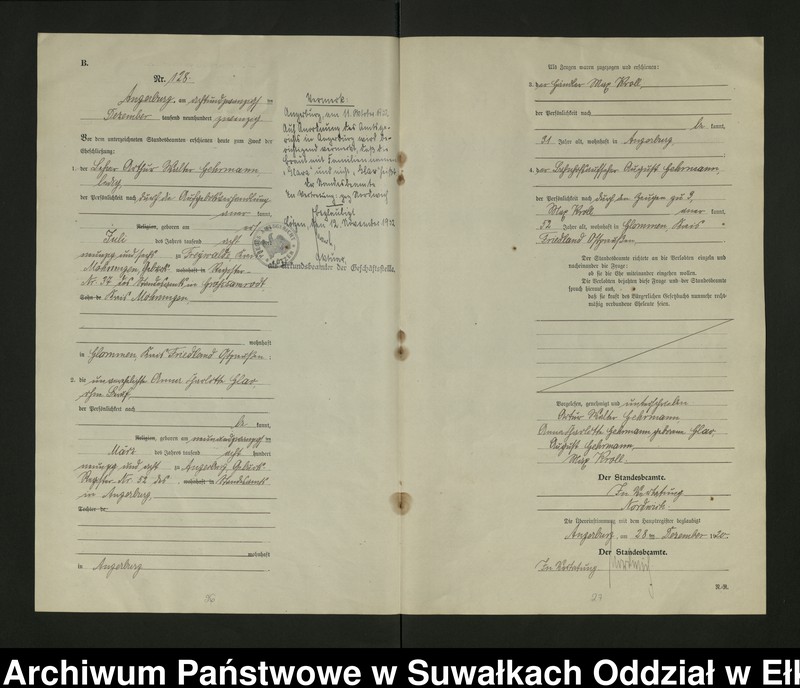 B.
Nr. 128.
Angerburg, am achtundzwanzigsten
Dezember tausend neunhundert zwanzig
Vor dem unterzeichneten Standesbeamten erschienen heute zum Zweck der
Eheschließung:
1. der Lehrer Arthur Walter Gehrmann
ledig
der Persönlichkeit nach durch die Aufgebotsverhandlung
kannt,
Religion, geboren am
Juli des Jahres tausend acht
neunzig und sechs zu
Mohrungen, Geburts- wohnhaft in Register
Nr. 37 des Standesamts in
Sohn de Kreis Mohrungen
wohnhaft
in Glommen, Kreis Friedland Ostpreußen;
2. die unverehelichte Anna Charlotte Glar,
ohne Beruf
der Persönlichkeit nach
be kannt,
Religion, geboren am neunundzwanzigsten
März des Jahres tausend acht hundert
neunzig und acht zu Angerburg Geburts-
Register Nr. 52 des wohnhaft in Standesamts
in Angerburg
Tochter de
wohnhaft
in Angerburg
Vermerk:
Angerburg, am 11. Oktober 1922
Auf Anordnung des Amtsge-
richts in Angerburg wird be-
richtigend vermerkt, daß die
Braut mit Familiennamen
Der Standesbeamte
In Vertretung: gez. Nordwich
Beglaubigt
Lötzen, den 12. November 1932
als Urkundsbeamter der Geschäftsstelle.
Als Zeugen waren zugezogen und erschienen:
3. der Händler Max Kroll,
der Persönlichkeit nach
be kannt,
31 Jahre alt, wohnhaft in Angerburg
4. der Bahnhofsaufseher August Gehrmann,
der Persönlichkeit nach durch den Zeugen zu 3,
Max Kroll kannt,
52 Jahre alt, wohnhaft in Glommen, Kreis
Friedland Ostpreußen.
Der Standesbeamte richtete an die Verlobten einzeln und
nacheinander die Frage:
ob sie die Ehe miteinander eingehen wollen.
Die Verlobten bejahten diese Frage und der Standesbeamte
sprach hierauf aus,
daß sie kraft des Bürgerlichen Gesetzbuchs nunmehr recht-
mäßig verbundene Eheleute seien.
Vorgelesen, genehmigt und unterschrieben
Artur Walter Gehrmann
Anna Charlotte Gehrmann geborene Glar
August Gehrmann
Max Kroll.
Der Standesbeamte.
In Vertretung
Nordwich.
Die Übereinstimmung mit dem Hauptregister beglaubigt
Angerburg, am 28ten Dezember 1920.
Der Standesbeamte.
In Vertretung
R.-B.
Archiwum Państwowe w Suwałkach Oddział w Ełk